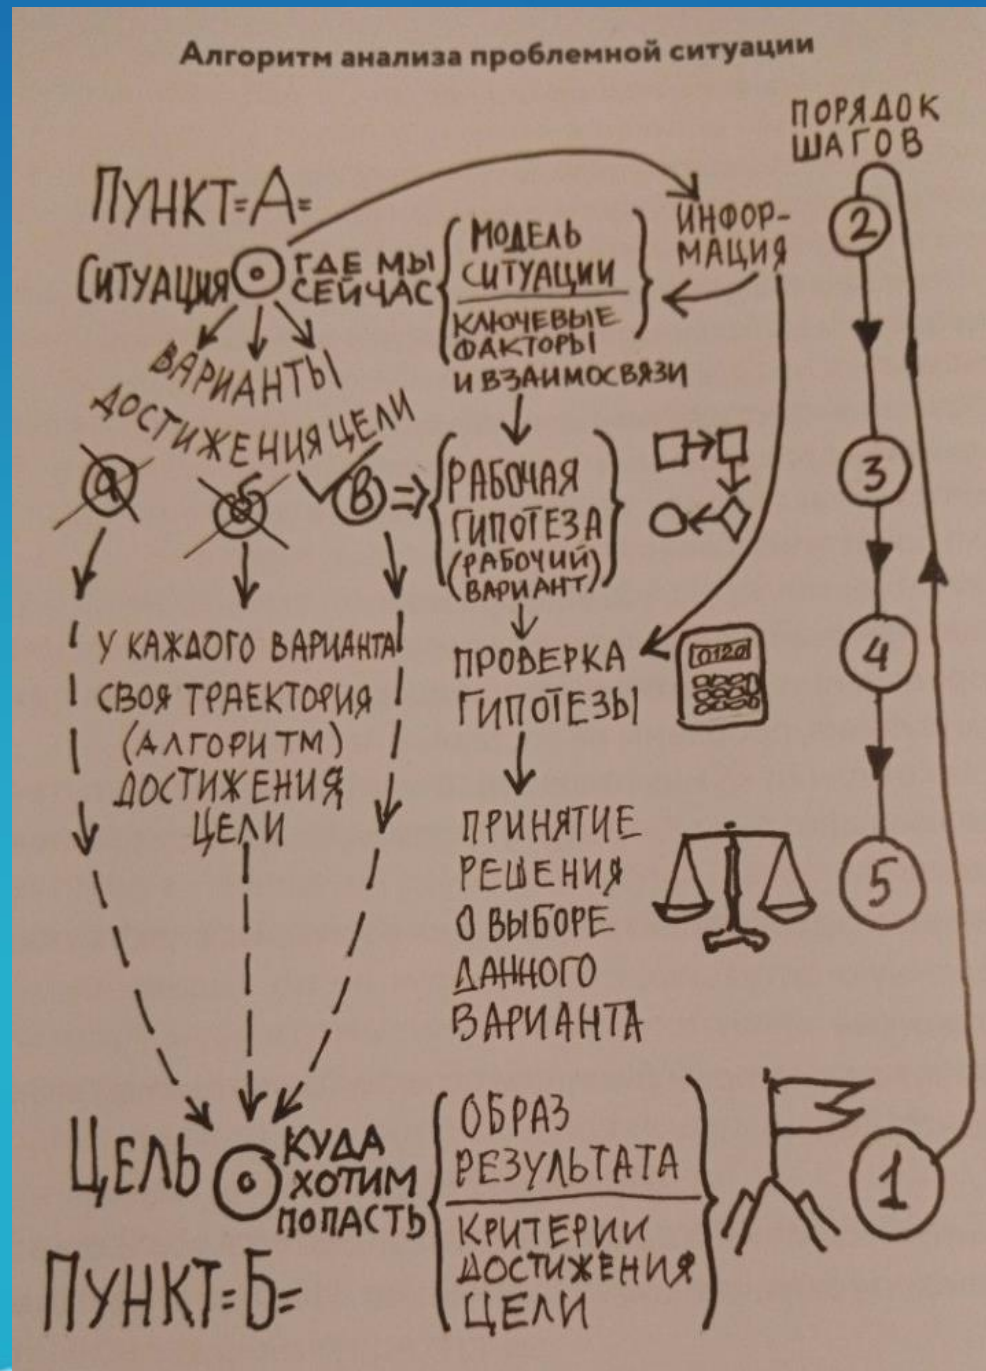 Алгоритм анализа проблемной ситуации
ПОРЯДОК
ШАГОВ
ПУНКТ=А=
СИТУАЦИЯ
ГДЕ МЫ
СЕЙЧАС
МОДЕЛЬ
СИТУАЦИИ
КЛЮЧЕВЫЕ
ФАКТОРЫ
И ВЗАИМОСВЯЗИ
ИНФОР-
МАЦИЯ
2
ВАРИАНТЫ
ДОСТИЖЕНИЯ ЦЕЛИ
а
б
в
РАБОЧАЯ
ГИПОТЕЗА
(РАБОЧИЙ
ВАРИАНТ)
3
У КАЖДОГО ВАРИАНТА
СВОЯ ТРАЕКТОРИЯ
(АЛГОРИТМ)
ДОСТИЖЕНИЯ
ЦЕЛИ
ПРОВЕРКА
ГИПОТЕЗЫ
0120
4
ПРИНЯТИЕ
РЕШЕНИЯ
О ВЫБОРЕ
ДАННОГО
ВАРИАНТА
5
ЦЕЛЬ
КУДА
ХОТИМ
ПОПАСТЬ
ОБРАЗ
РЕЗУЛЬТАТА
КРИТЕРИИ
ДОСТИЖЕНИЯ
ЦЕЛИ
1
ПУНКТ=Б=